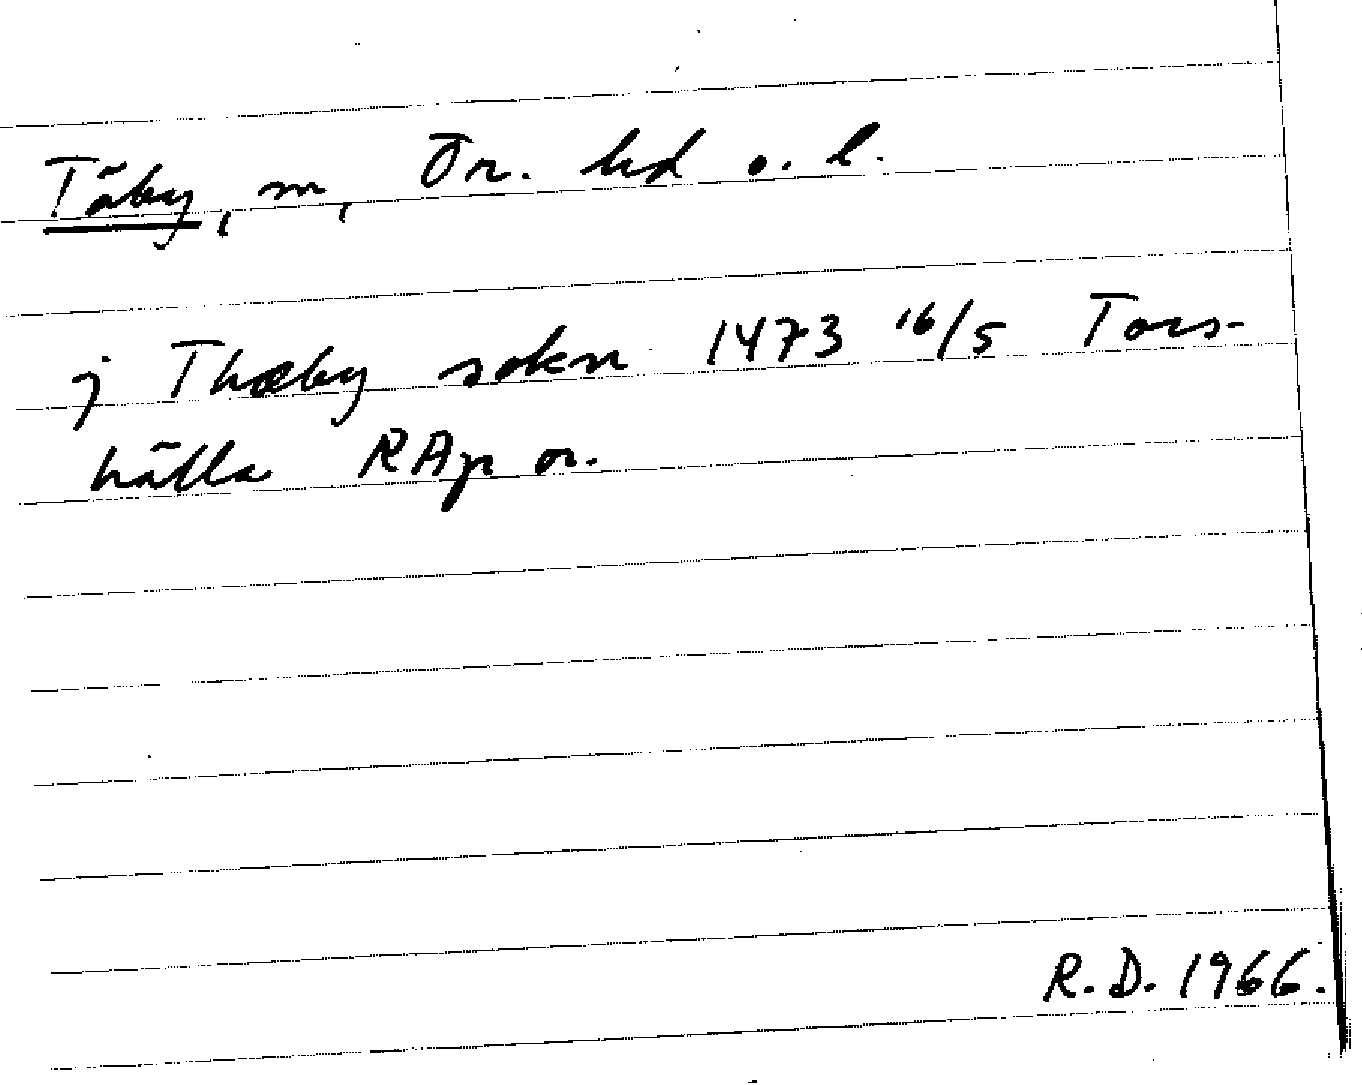 Täby, sn, Ör. hd o. l.
j Thæby sokn 1473 16/5 Tors-
hälla RAp or.
R.D. 1966.